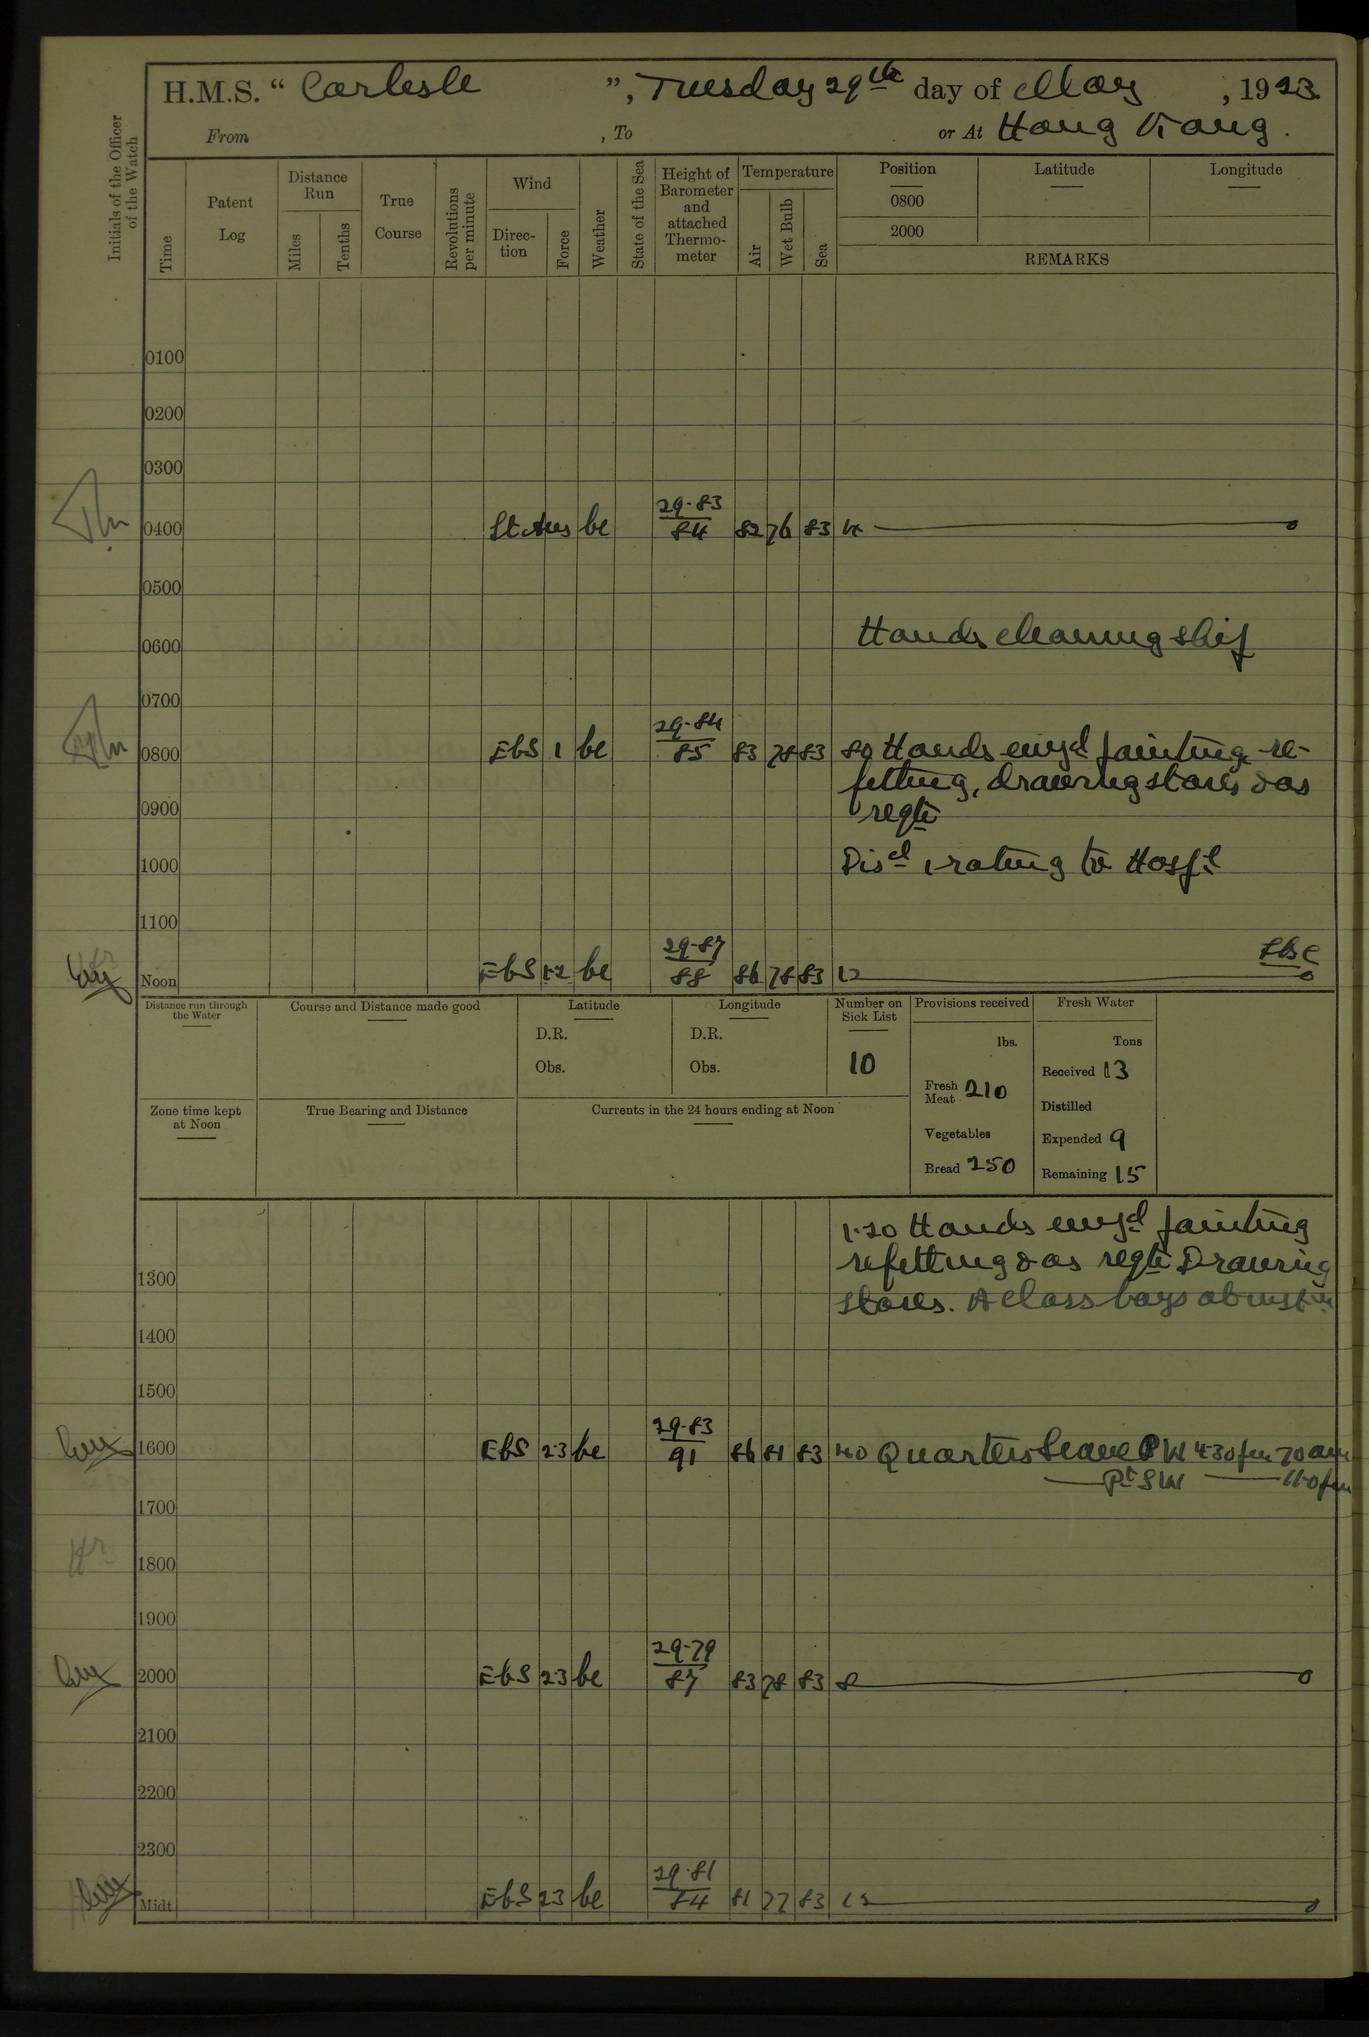 H.M.S. “ Carlisle ”, Tuesday 29th day of May , 1923
From , To or At Hong Kong.
Initials of the Officer of the Watch
Time
Patent Log
Distance Run
Miles
Tenths
True Course
Revolutions per minute
Wind
Direc-tion
Force
Weather
State of the Sea
Height of Barometer and attached Thermo-meter
Temperature
Air
Wet Bulb
Sea
Position
0800
2000
Latitude
Longitude
REMARKS
0100
0200
0300
0400 bc 29.83 84 82 76 83 4
0500
0600 Hands cleaning ship
0700
0800 EbS 1 bc 29.84 85 83 78 83 8.0 Hands empd painting, re-
fitting, drawing stores & as
0900 reqte
1000 Discd 1 rating to Hospl
1100
Noon EbS 1.2 bc 29.87 88 86 78 83 12
Distance run through the Water
Course and Distance made good
Latitude
D.R.
Obs.
Longitude
D.R.
Obs.
Number on Sick List
10
Provisions received
lbs.
Fresh Meat 210
Vegetables
Bread 250
Fresh Water
Tons
Received 13
Distilled
Expended 9
Remaining 15
Zone time kept at Noon
True Bearing and Distance
Currents in the 24 hours ending at Noon
1.20 Hands empd painting
refitting & as reqte Drawing
1300 stores. A class boys at
1400
1500
1600 EbS 2.3 bc 29.83 91 86 81 83 4.0 Quarters Leave W 4.30 pm 7.0 am
Pt SW 11.0 pm
1700
1800
1900
2000 EbS 2.3 bc 29.79 87 83 78 83 8
2100
2200
2300
Midt EbS 2.3 bc 29.81 84 81 77 83 12